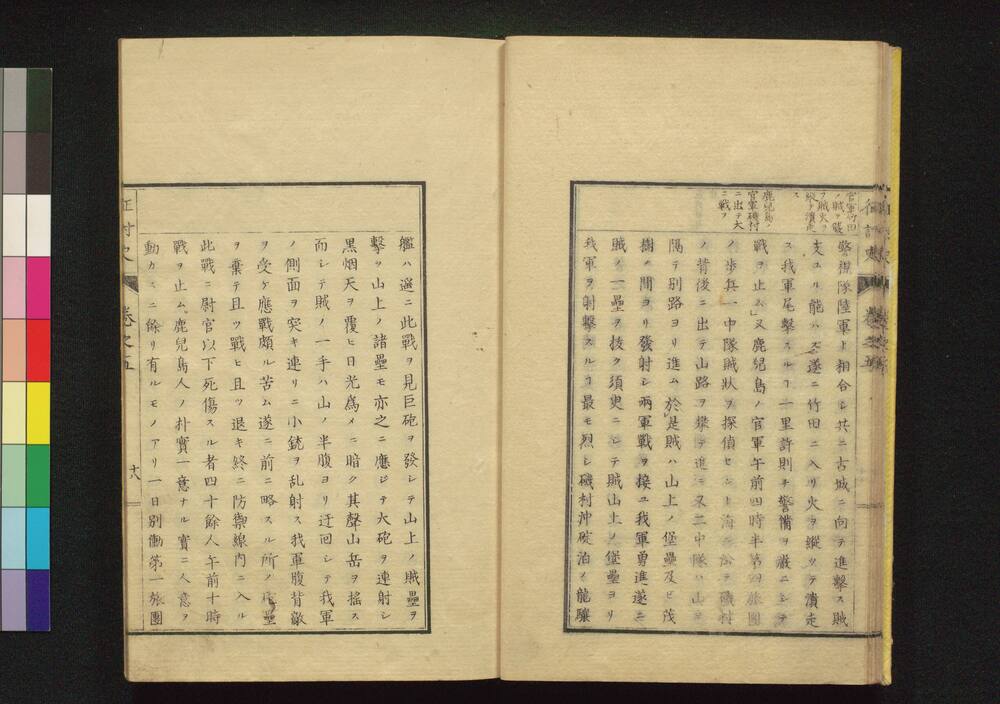 官軍竹田
ノ賊ヲ襲
フ賊火ヲ
縱テ潰走
ス
警視隊陸軍ト相合シ共ニ古城ニ向テ進擊ス賊
支ユル能ハス遂ニ竹田ニ入リ火ヲ縱ツテ潰走
ス我軍尾擊スルヿ一里許則チ警備ヲ嚴ニシテ
鹿兒島ノ
官軍磯村
ニ出テ大
ニ戰フ
戰ヲ止ム」又鹿兒島ノ官軍午前四時半第四旅團
ノ歩兵一中隊賊狀ヲ探偵セント海ニ沿テ磯村
ノ背後ニ出テ山路ヲ攀テ進ミ又二中隊ハ山ヲ
隔テ別路ヨリ進ム於是賊ハ山上ノ堡壘及ヒ茂
樹ノ間ヨリ發射シ兩軍戰ヲ接ユ我軍勇進遂ニ
賊ノ一壘ヲ拔ク須臾ニシテ賊山上ノ堡壘ヨリ
我軍ヲ射擊スルヿ最モ烈シ磯村沖碇泊ノ龍驤
艦ハ遥ニ此戰ヲ見巨砲ヲ發シテ山上ノ賊壘ヲ
擊ツ山上ノ諸壘モ亦之ニ應ジテ大砲ヲ連射シ
黑烟天ヲ覆ヒ日光爲メニ暗ク其聲山岳ヲ搖ス
而シテ賊ノ一手ハ山ノ半腹ヨリ迂回シテ我軍
ノ側面ヲ突キ連リニ小銃ヲ乱射ス我軍腹背敵
ヲ受ケ應戰頗ル苦ム遂ニ前ニ略スル所ノ壘
ヲ棄テ且ツ戰ヒ且ツ退キ終ニ防禦線内ニ入ル
此戰ニ尉官以下死傷スル者四十餘人午前十時
戰ヲ止ム」鹿兒島人ノ朴實一意ナル實ニ人意ヲ
動カスニ餘リ有ルモノアリ一日別働第一旅團
征討史
卷之五
十八